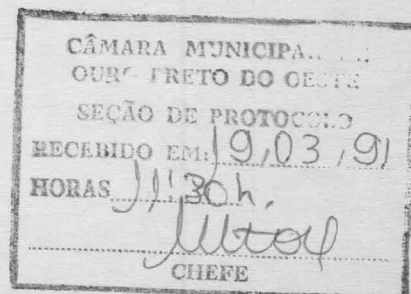 CÂMARA MUNICIPA
OURO PRETO DO OESTE
SEÇÃO DE PROTOCOLO
RECEBIDO EM: 19,03,91
HORAS 11:30h.
CHEFE